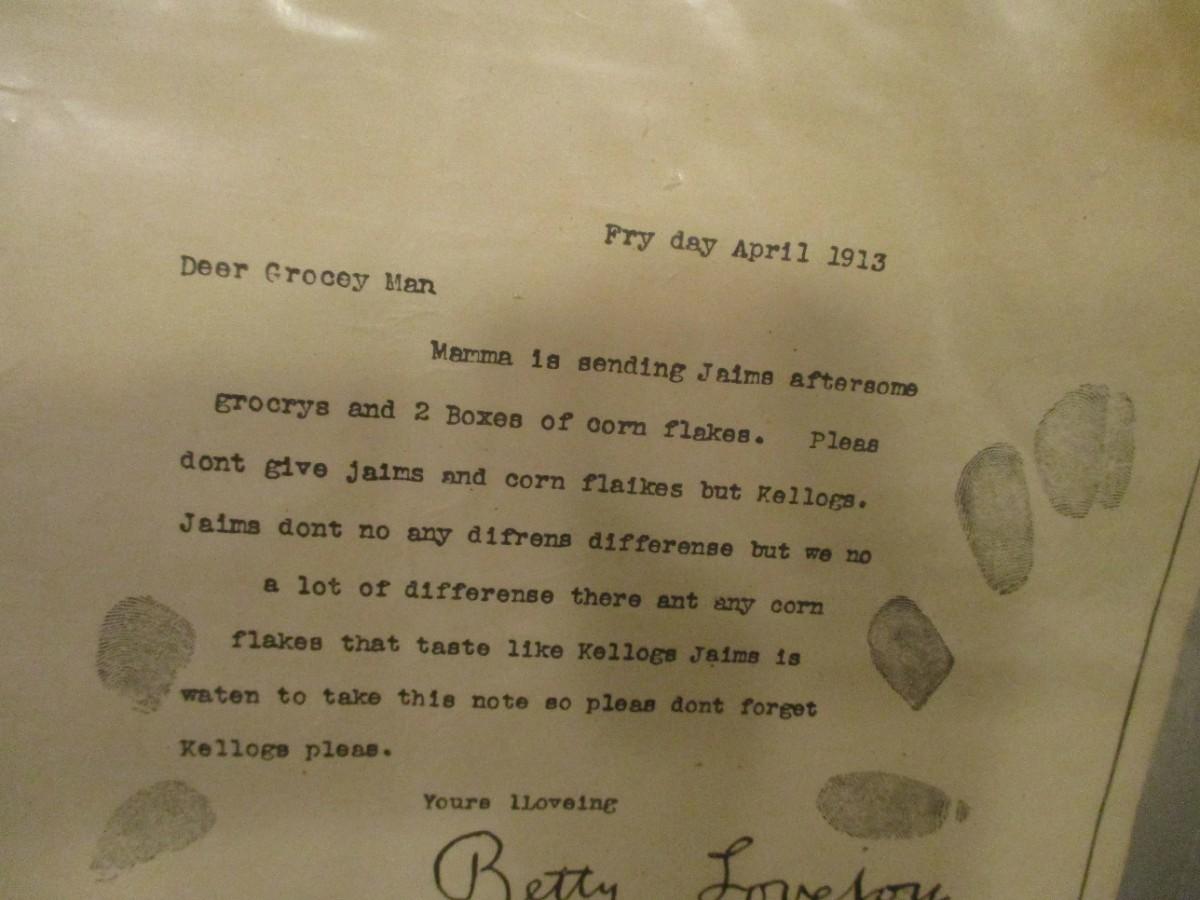 Fry day April 1913
Deer Grocey Man
Mamma is sending Jaims aftersome
grocrys and 2 Boxes of corn flakes. Pleas
dont give jaims and corn flaikes but Kellogs.
Jaims dont no any difrens differense but we no
a lot of differense there ant any corn
flakes that taste like Kellogs Jaims is
waten to take this note so pleas dont forget
Kellogs pleas.
Yours lLoveing
Betty